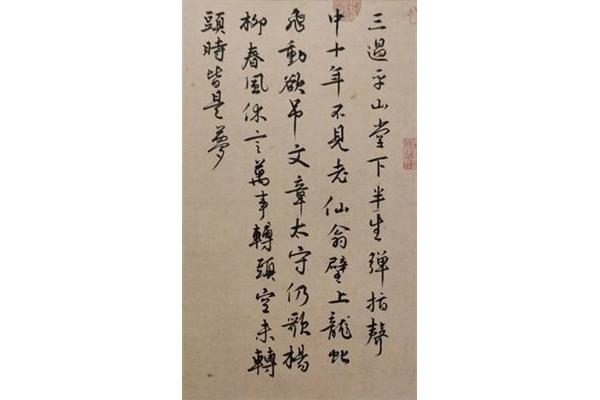 三過平山堂下半生彈指聲
中十年不見老仙翁壁上龍蛇
飛動欲吊文章太守仍歌楊
柳春風休言萬事轉頭空未轉
頭時皆是夢